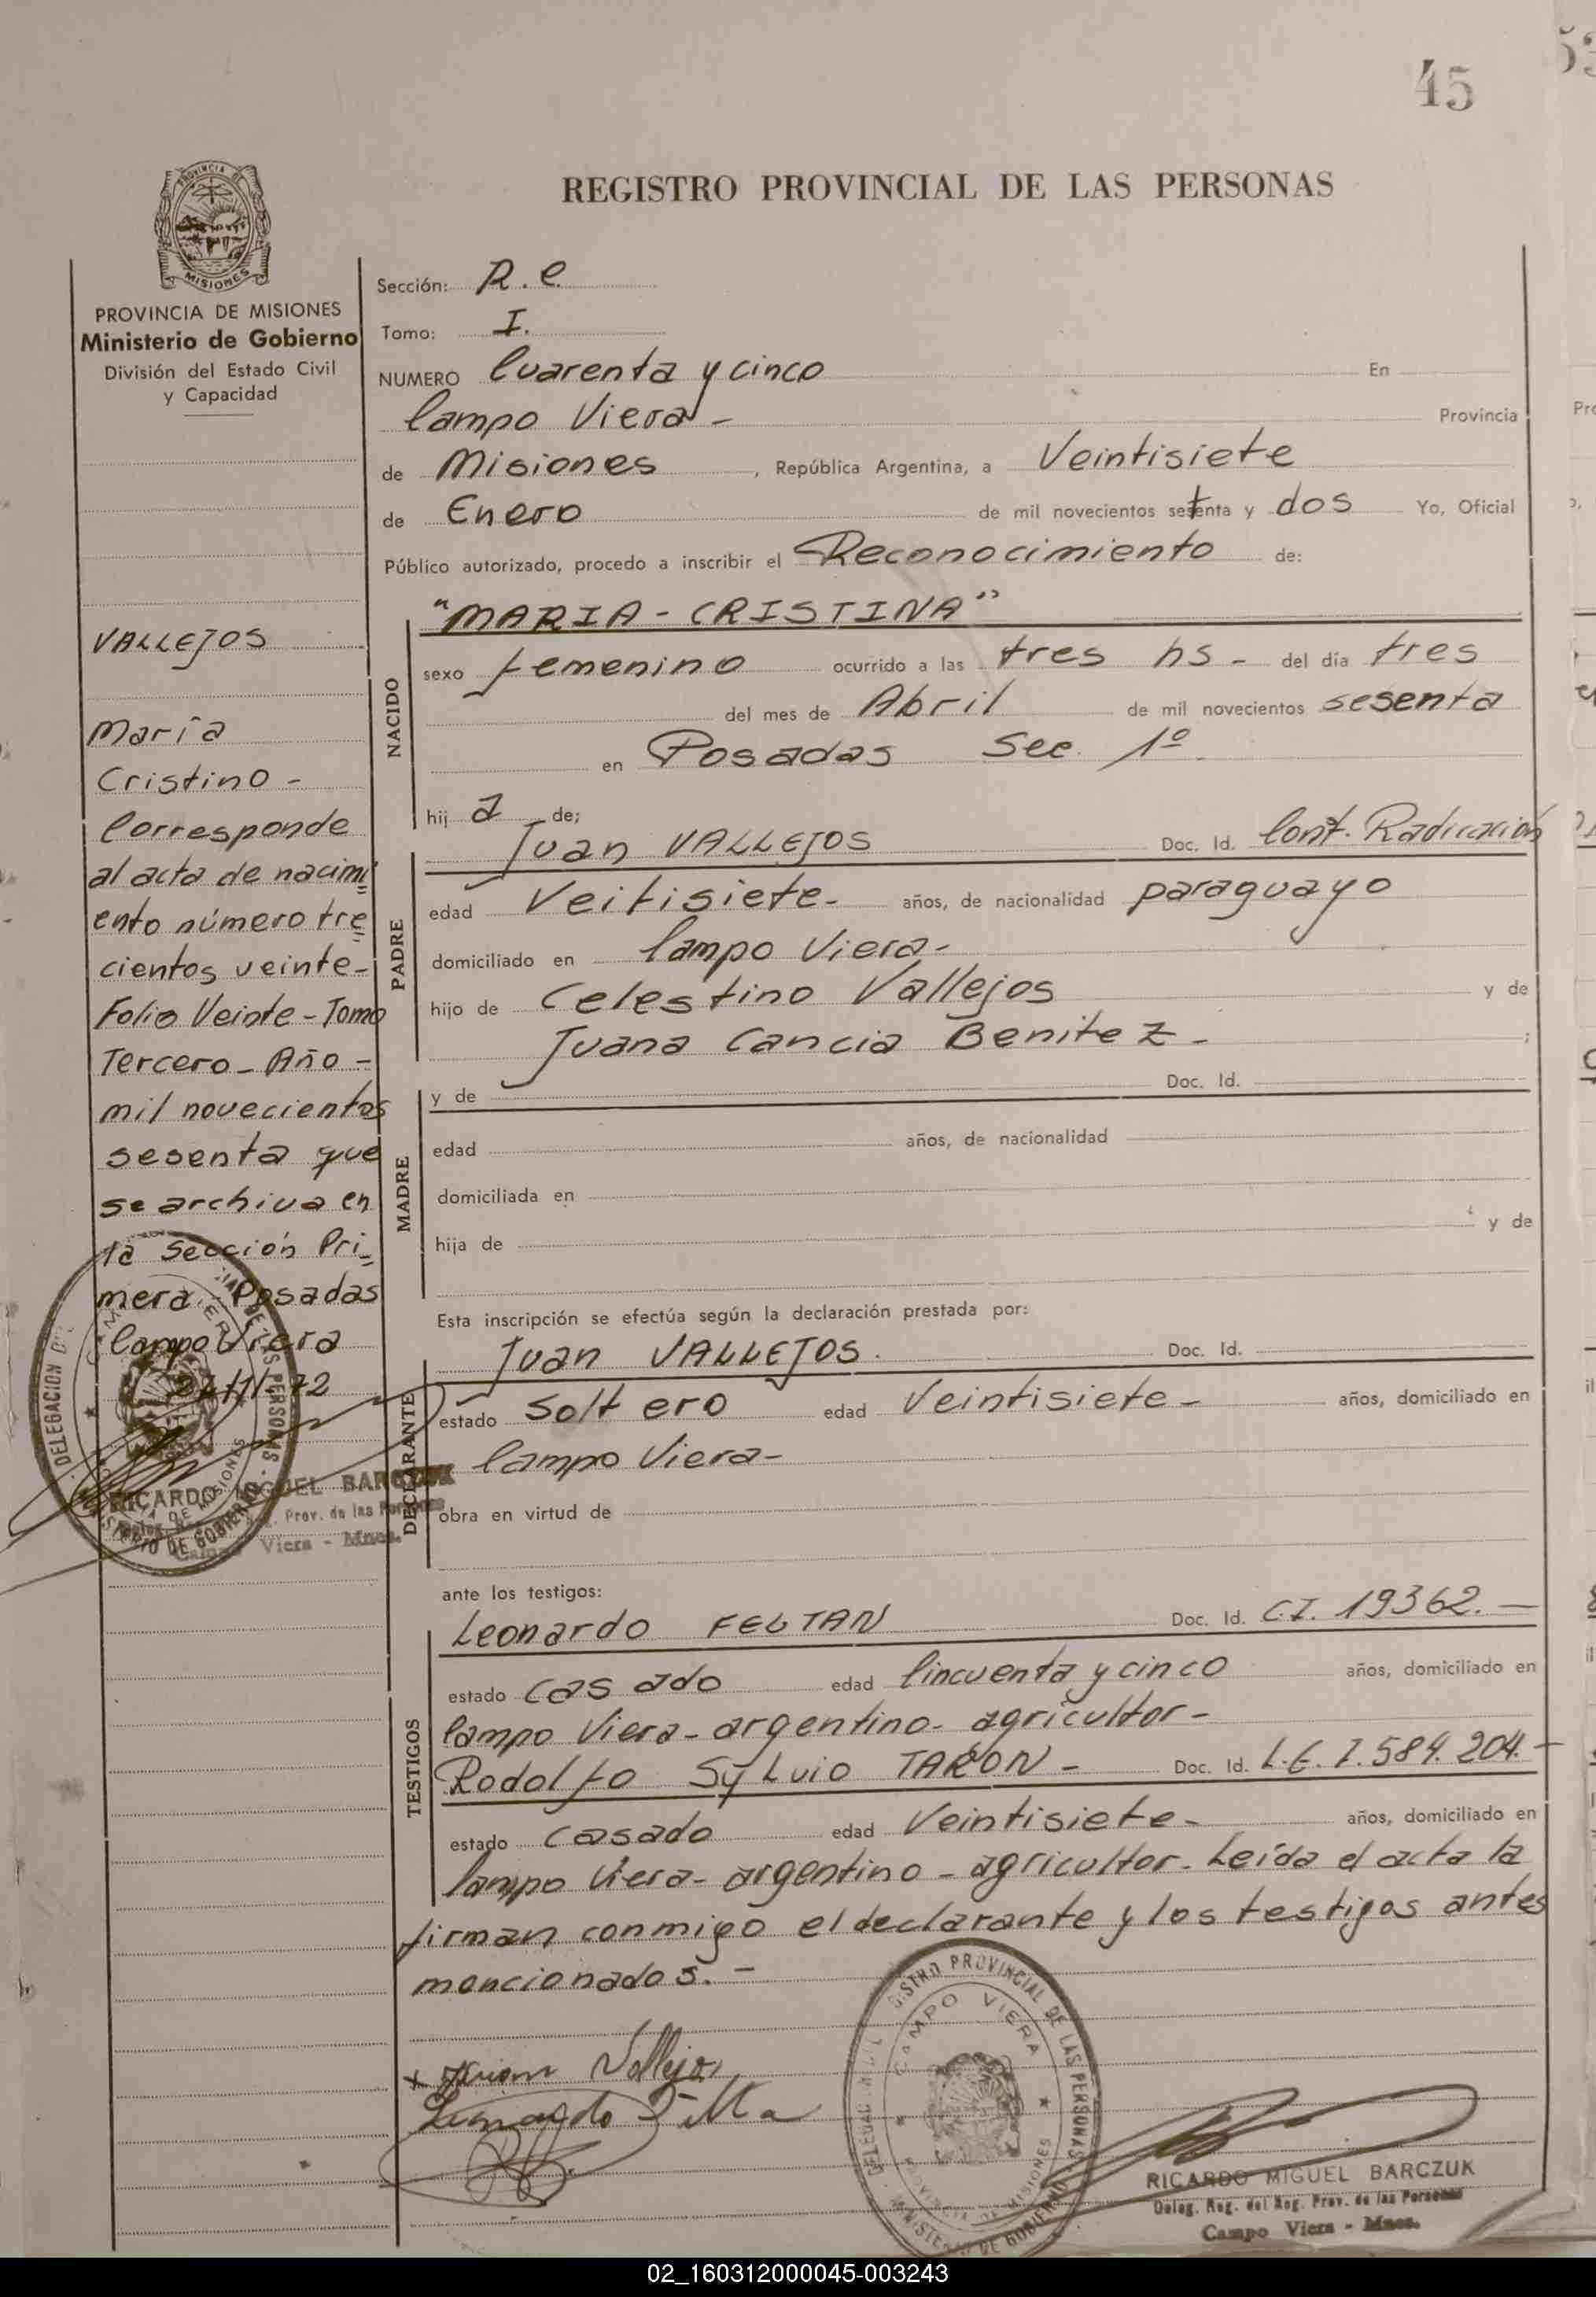 45
REGISTRO PROVINCIAL DE LAS PERSONAS
PROVINCIA DE
MISIONES
PROVINCIA DE MISIONES
Ministerio de Gobierno
División del Estado Civil
y Capacidad
VALLEJOS
María
Cristina -
Corresponde
al acta de nacimi
ento número tre
cientos veinte-
Folio Veinte - Tomo
Tercero - Año -
mil novecientos
sesenta que
se archiva en
la Sección Pri
mera - Posadas
Campo Viera
RICARDO MIGUEL BARCZUK
Prov. de las Personas
Campo Viera - Mnes.
Sección: R.C.
Tomo: I.
NUMERO Cuarenta y cinco En
Campo Viera - Provincia
de Misiones , República Argentina, a Veintisiete
de Enero de mil novecientos setenta y dos Yo, Oficial
Público autorizado, procedo a inscribir el Reconocimiento de:
NACIDO
"MARIA - CRISTINA"
sexo femenino ocurrido a las tres hs - del día tres
del mes de Abril de mil novecientos sesenta
en Posadas Sec. 1º
hij a de;
PADRE
Juan VALLEJOS Doc. Id. Cont. Radicación
edad Veitisiete - años, de nacionalidad paraguayo
domiciliado en Campo Viera -
hijo de Celestino Vallejos y de
Juana Cancia Benitez - ;
MADRE
y de Doc. Id.
edad años, de nacionalidad
domiciliada en
hija de y de
Esta inscripción se efectúa según la declaración prestada por:
DECLARANTE
Juan VALLEJOS. Doc. Id.
estado Soltero edad Veintisiete - años, domiciliado en
Campo Viera -
obra en virtud de
ante los testigos:
TESTIGOS
Leonardo FELTAN Doc. Id. C.I. 19362. -
estado Casado edad Cincuenta y cinco años, domiciliado en
Campo Viera - argentino - agricultor -
Rodolfo Sylvio TARON - Doc. Id. L.E. 7.584.204. -
estado Casado edad Veintisiete - años, domiciliado en
Campo Viera - argentino - agricultor - Leída el acta la
firman conmigo el declarante y los testigos antes
mencionados. -
x Juan Vallejos
Leonardo
REGISTRO PROVINCIAL DE LAS PERSONAS
CAMPO VIERA
PROVINCIA DE MISIONES
MINISTERIO DE GOBIERNO
RICARDO MIGUEL BARCZUK
Deleg. Reg. del Reg. Prov. de las Personas
Campo Viera - Mnes.
02_160312000045-003243